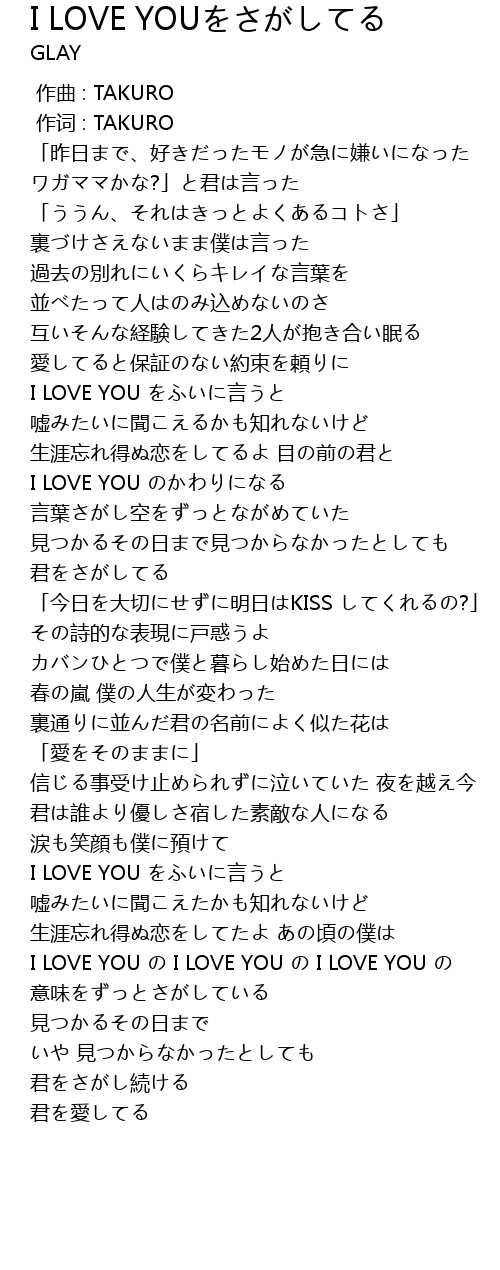 I LOVE YOUをさがしてる
GLAY
作曲 : TAKURO
作词 : TAKURO
「昨日まで、好きだったモノが急に嫌いになった
ワガママかな?」と君は言った
「ううん、それはきっとよくあるコトさ」
裏づけさえないまま僕は言った
過去の別れにいくらキレイな言葉を
並べたって人はのみ込めないのさ
互いそんな経験してきた2人が抱き合い眠る
愛してると保証のない約束を頼りに
I LOVE YOU をふいに言うと
嘘みたいに聞こえるかも知れないけど
生涯忘れ得ぬ恋をしてるよ 目の前の君と
I LOVE YOU のかわりになる
言葉さがし空をずっとながめていた
見つかるその日まで見つからなかったとしても
君をさがしてる
「今日を大切にせずに明日はKISS してくれるの?」
その詩的な表現に戸惑うよ
カバンひとつで僕と暮らし始めた日には
春の嵐 僕の人生が変わった
裏通りに並んだ君の名前によく似た花は
「愛をそのままに」
信じる事受け止められずに泣いていた 夜を越え今
君は誰より優しさ宿した素敵な人になる
涙も笑顔も僕に預けて
I LOVE YOU をふいに言うと
嘘みたいに聞こえたかも知れないけど
生涯忘れ得ぬ恋をしてたよ あの頃の僕は
I LOVE YOU の I LOVE YOU の I LOVE YOU の
意味をずっとさがしている
見つかるその日まで
いや 見つからなかったとしても
君をさがし続ける
君を愛してる